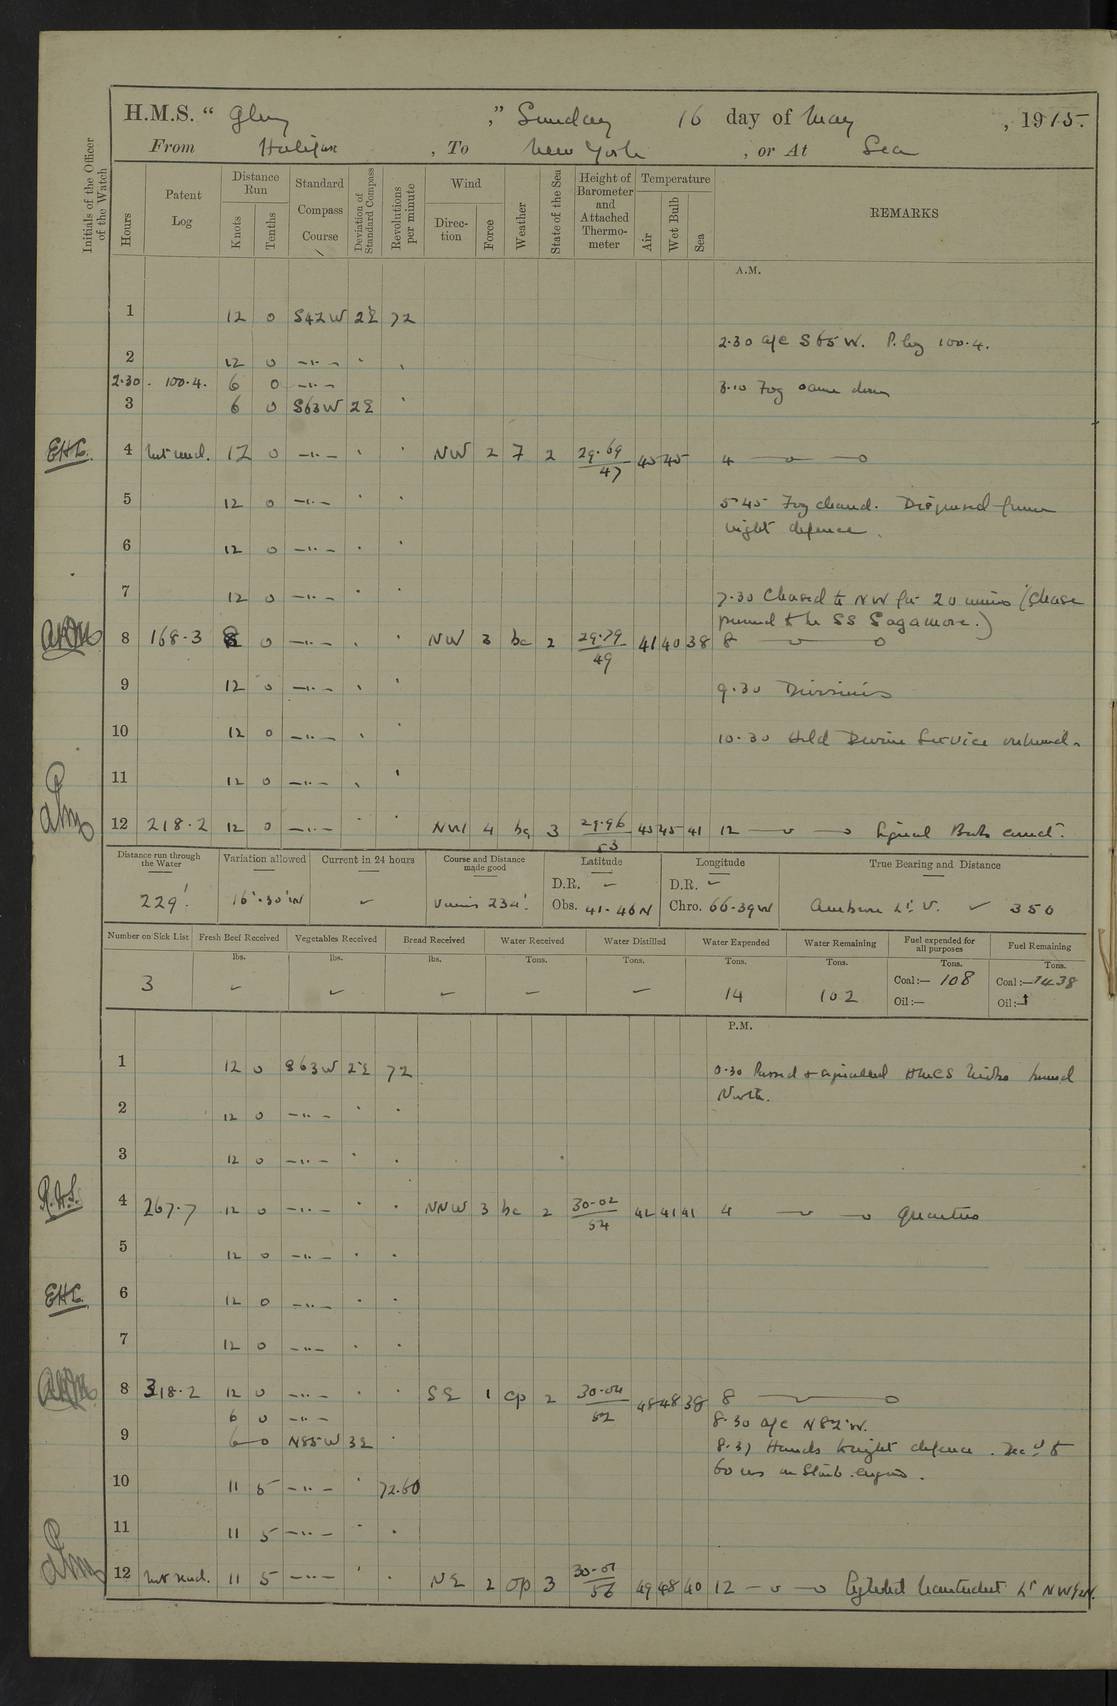 H.M.S. “ Glory ,” Sunday 16 day of May , 1915.
From Halifax , To New York , or At Sea
Initials of the Officer of the Watch
Hours
Patent Log
Distance Run
Knots
Tenths
Standard Compass Course
Deviation of Standard Compass
Revolutions per minute
Wind
Direction
Force
Weather
State of the Sea
Height of Barometer and Attached Thermometer
Temperature
Air
Wet Bulb
Sea
REMARKS
A.M.
1 12 0 S42W 2E 72
2.30 a/c S65W. P. log 100.4.
2 12 0 —··—
2.30 . 100.4. 6 0 —··—
3.10 Fog came down
3 6 0 S63W 2E
EHC. 4 Not read. 12 0 —··— NW 2 7 2 29.69 47 45 45 4
5 12 0 —··—
5.45 Fog cleared. Dispersed from
night defence.
6 12 0 —··—
7 12 0 —··—
7.30 Chased to NW for 20 mins (Chase
proved to be SS Sagamore.)
8 168.3 8 0 —··— NW 3 bc 2 29.79 49 41 40 38 8
9 12 0 —··—
9.30 Divisions
10 12 0 —··—
10.30 Held Divine Service onboard.
11 12 0 —··—
12 218.2 12 0 —··— NW 4 bc 3 29.96 53 45 45 41 12 Signal Books correct.
Distance run through the Water
Variation allowed
Current in 24 hours
Course and Distance made good
Latitude
Longitude
True Bearing and Distance
229'. 16°.30'W – Various 234'. D.R. – Obs. 41-46N D.R. – Chro. 66-39W Ambrose Lt. V. 350
Number on Sick List
Fresh Beef Received
Vegetables Received
Bread Received
Water Received
Water Distilled
Water Expended
Water Remaining
Fuel expended for all purposes
Fuel Remaining
lbs. lbs. lbs. Tons. Tons. Tons. Tons. Tons. Tons.
3 – – – – – 14 102 Coal:— 108 Coal:—1438
Oil:— Oil:—
P.M.
1 12 0 S63W 2E 72
0.30 Passed & signalled HMCS Niobe bound
North.
2 12 0 —··—
3 12 0 —··—
R.H.S. 4 267.7 12 0 —··— NNW 3 bc 2 30-02 54 42 41 41 4 Quarters
5 12 0 —··—
EHC. 6 12 0 —··—
7 12 0 —··—
8 318.2 12 0 —··— SE 1 cp 2 30-04 52 48 48 38 8
6 0 —··—
8.30 a/c N82°W.
9 6 0 N85W 3E
8.37 Hands to night defence. Decd. to
60 revs on Starb. engine.
10 11 5 —··— 72.60
11 11 5 —··—
12 Not read. 11 5 —··— NE 2 op 3 30-01 56 49 48 40 12 Sighted Nantucket Lt